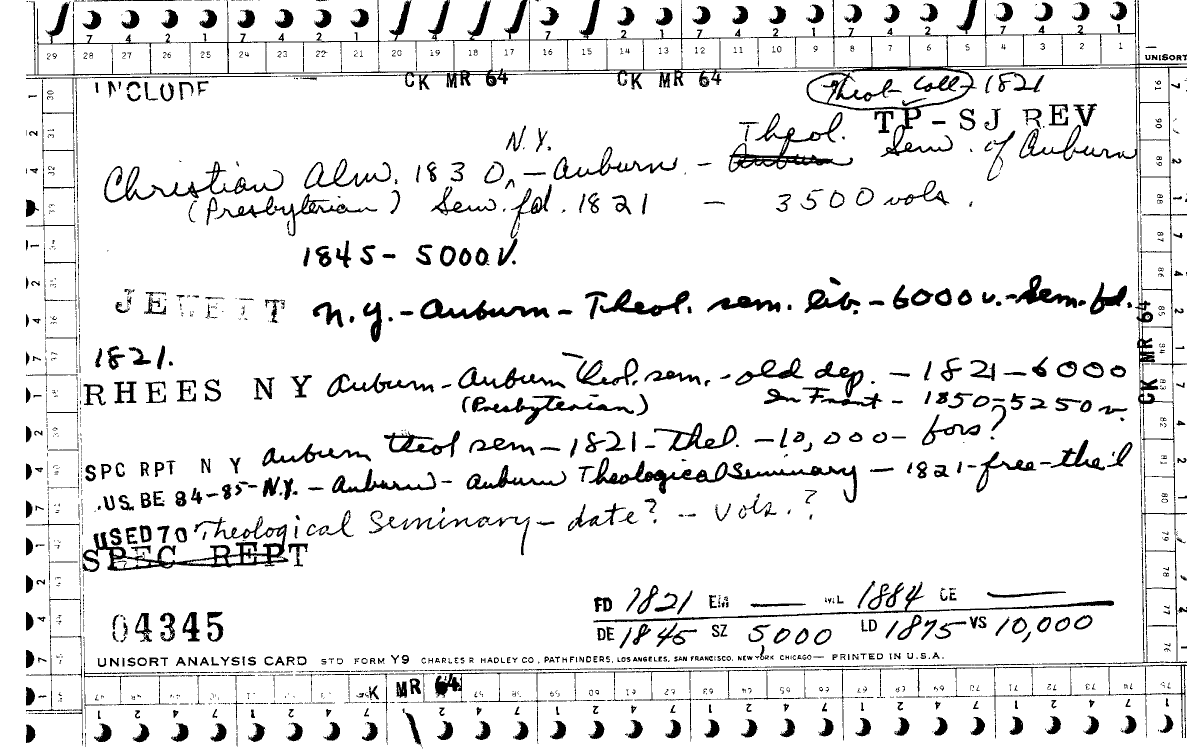 29 28 27 26 25 24 23 22 21 20 19 18 17 16 15 14 13 12 11 10 9 8 7 6 5 4 3 2 1
UNISORT
INCLUDE CK MR 64 CK MR 64 Theol Coll - 1821
TP-SJ REV
N.Y. Theol.
Christian Alm. 1830, - Auburn - Auburn Sem. of Auburn
(Presbyterian) Sem. fd. 1821 - 3500 vols.
1845 - 5000 V.
JEWETT N.Y. - Auburn - Theol. sem. lib. - 6000 v. - Sem. fd.
1821.
RHEES N Y Auburn - Auburn Theol. sem. - old dep. - 1821 - 6000
(Presbyterian) In Front - 1850 - 5250 v.
SPC RPT N Y Auburn theol sem - 1821 - thel. - 10,000 - fors?
U.S. BE 84-85 - N.Y. - Auburn - Auburn Theological Seminary - 1821 - free - the'l
USED 70 Theological Seminary - date? - vols.?
SPEC REPT
CK MR 64
FD 1821 EM — ML 1884 CE —
04345
DE 1845 SZ 5000 LD 1875 VS 10,000
UNISORT ANALYSIS CARD STD FORM Y9 CHARLES R HADLEY CO., PATHFINDERS, LOS ANGELES, SAN FRANCISCO, NEW YORK CHICAGO — PRINTED IN U.S.A.
CK MR 64